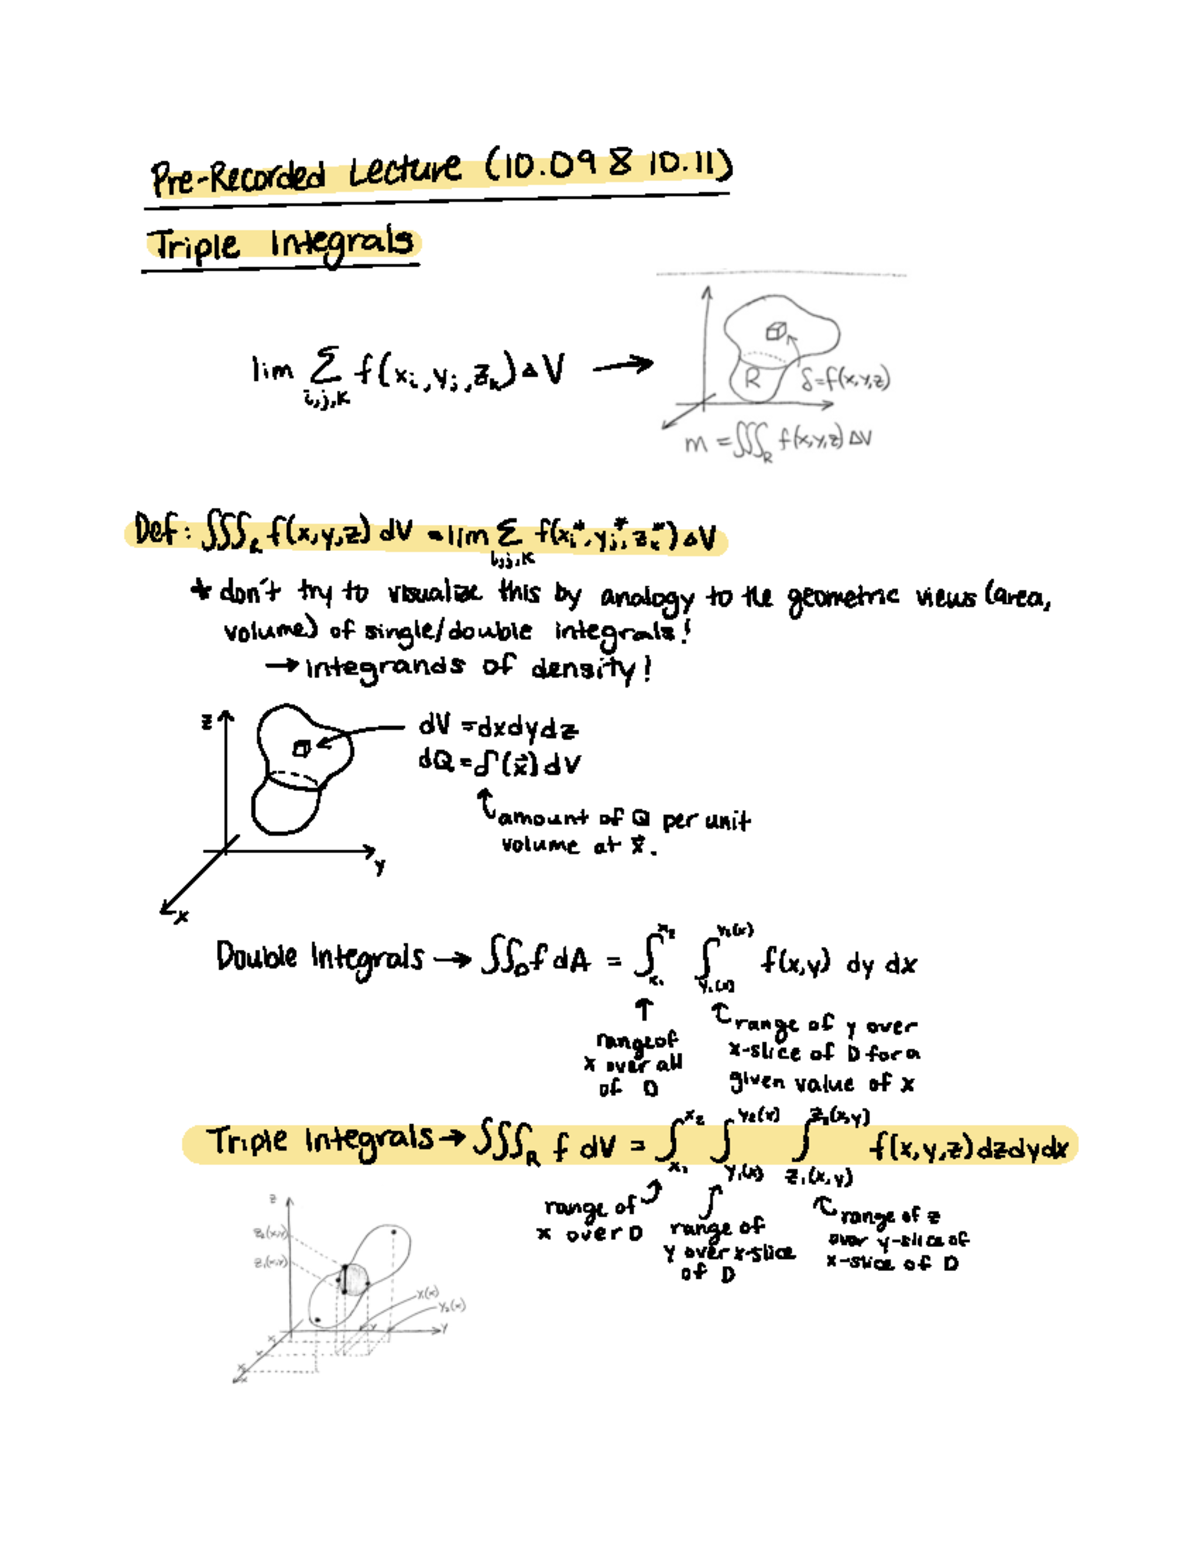 Pre-Recorded Lecture (10.09 & 10.11)
Triple Integrals
lim Σ f(xᵢ, yⱼ, zₖ) ΔV →
i,j,k
R δ=f(x,y,z)
m = ∭_R f(x,y,z) ΔV
Def: ∭_R f(x,y,z) dV = lim Σ f(xᵢ*, yⱼ*, zₖ*) ΔV
i,j,k
* don't try to visualize this by analogy to the geometric views (area,
volume) of single/double integrals!
→ integrands of density!
z
dV = dxdydz
dQ = δ(x⃗) dV
amount of Q per unit
volume at x⃗.
y
x
Double Integrals → ∬_D f dA = ∫_{x₁}^{x₂} ∫_{y₁(x)}^{y₂(x)} f(x,y) dy dx
range of
x over all
of D
range of y over
x-slice of D for a
given value of x
Triple Integrals → ∭_R f dV = ∫_{x₁}^{x₂} ∫_{y₁(x)}^{y₂(x)} ∫_{z₁(x,y)}^{z₂(x,y)} f(x,y,z) dzdydx
range of
x over D
range of
y over x-slice
of D
range of z
over y-slice of
x-slice of D
z
z₂(x,y)
z₁(x,y)
y₁(x)
y₂(x)
y
y
x₁
x
x₂
x